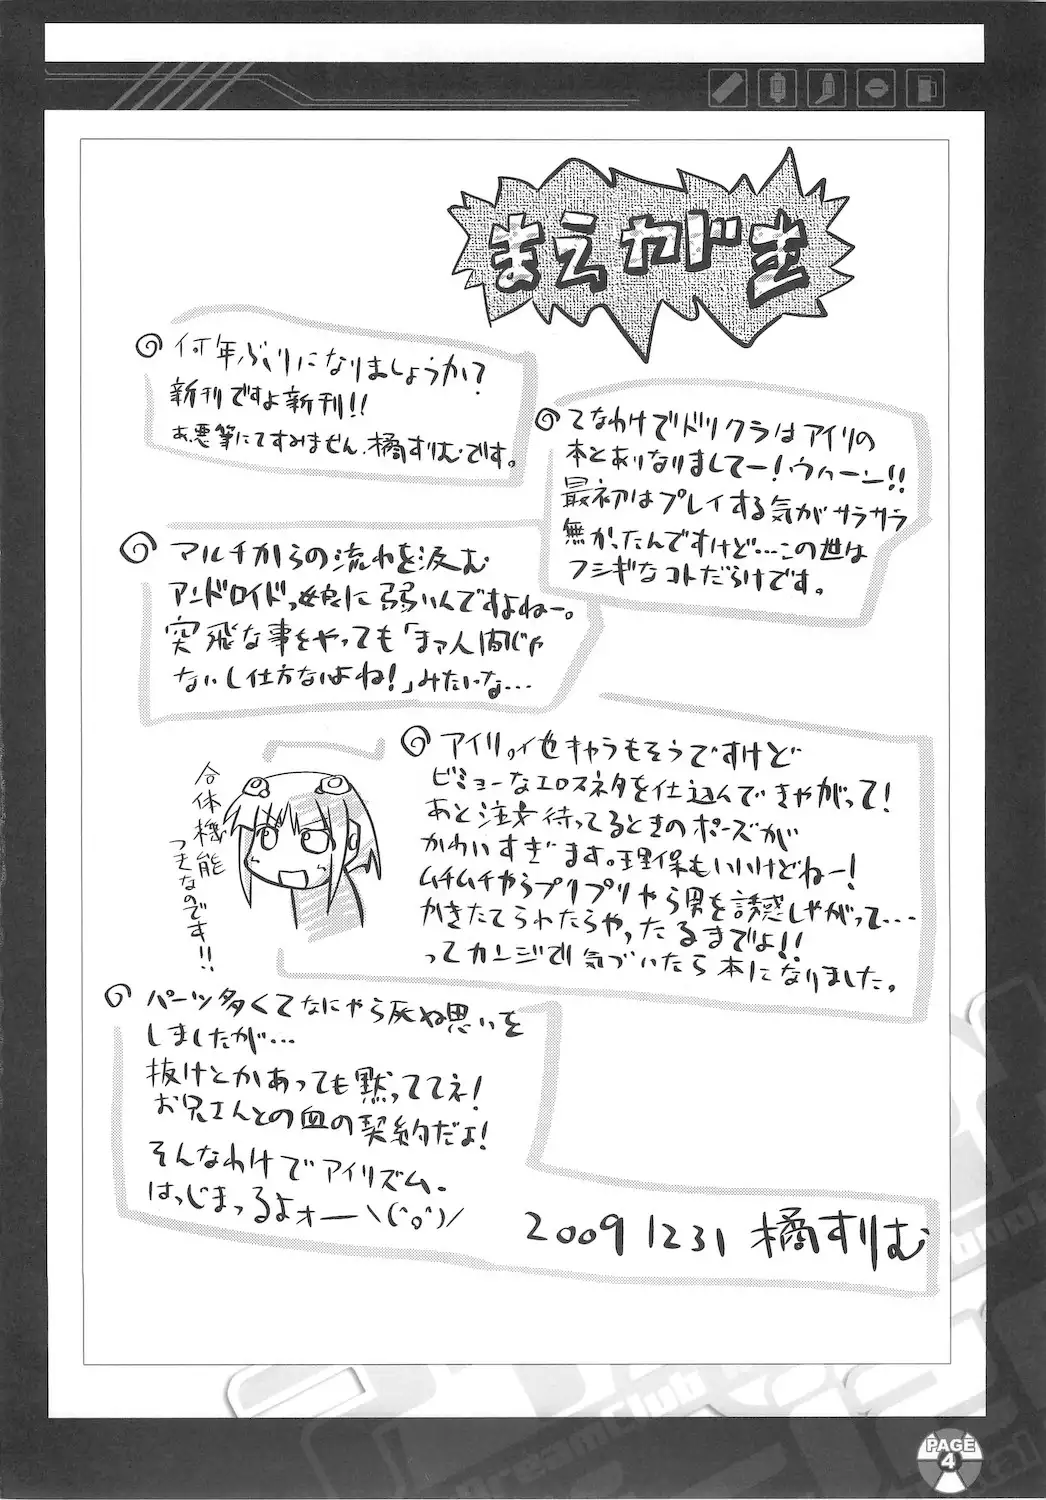 まえがき
何年ぶりになりましょうか?
新刊ですよ新刊!!
あ、悪筆にてすみません、橘すりむです。
てなわけでドリクラはアイリの
本とありなりましてー!ウハーン!!
最初はプレイする気がサラサラ
無かったんですけど…この世は
フシギなコトだらけです。
マルチからの流れを汲む
アンドロイドっ娘に弱いんですよねー。
突飛な事をやっても「まァ人間じゃ
ないし仕方ないよね!」みたいな…
アイリ
他キャラもそうですけど
ビミョーなエロスネタを仕込んできやがって!
あと注文待ってるときのポーズが
かわいすぎます。理保もいいけどねー!
ムチムチやらプリプリやら男を誘惑しやがって…
かきたてられたらやったるまでよ!!
ってカンジで気づいたら本になりました。
合体機能
つきなのです!!
パーツ多くてなにやら死ぬ思いを
しましたが…
抜けとかあっても黙っててネ!
お兄さんとの血の契約だよ!
そんなわけでアイリズム、
はっじまっるよォー\(゜o゜)/
2009 1231 橘すりむ
DreamClub
PAGE
4